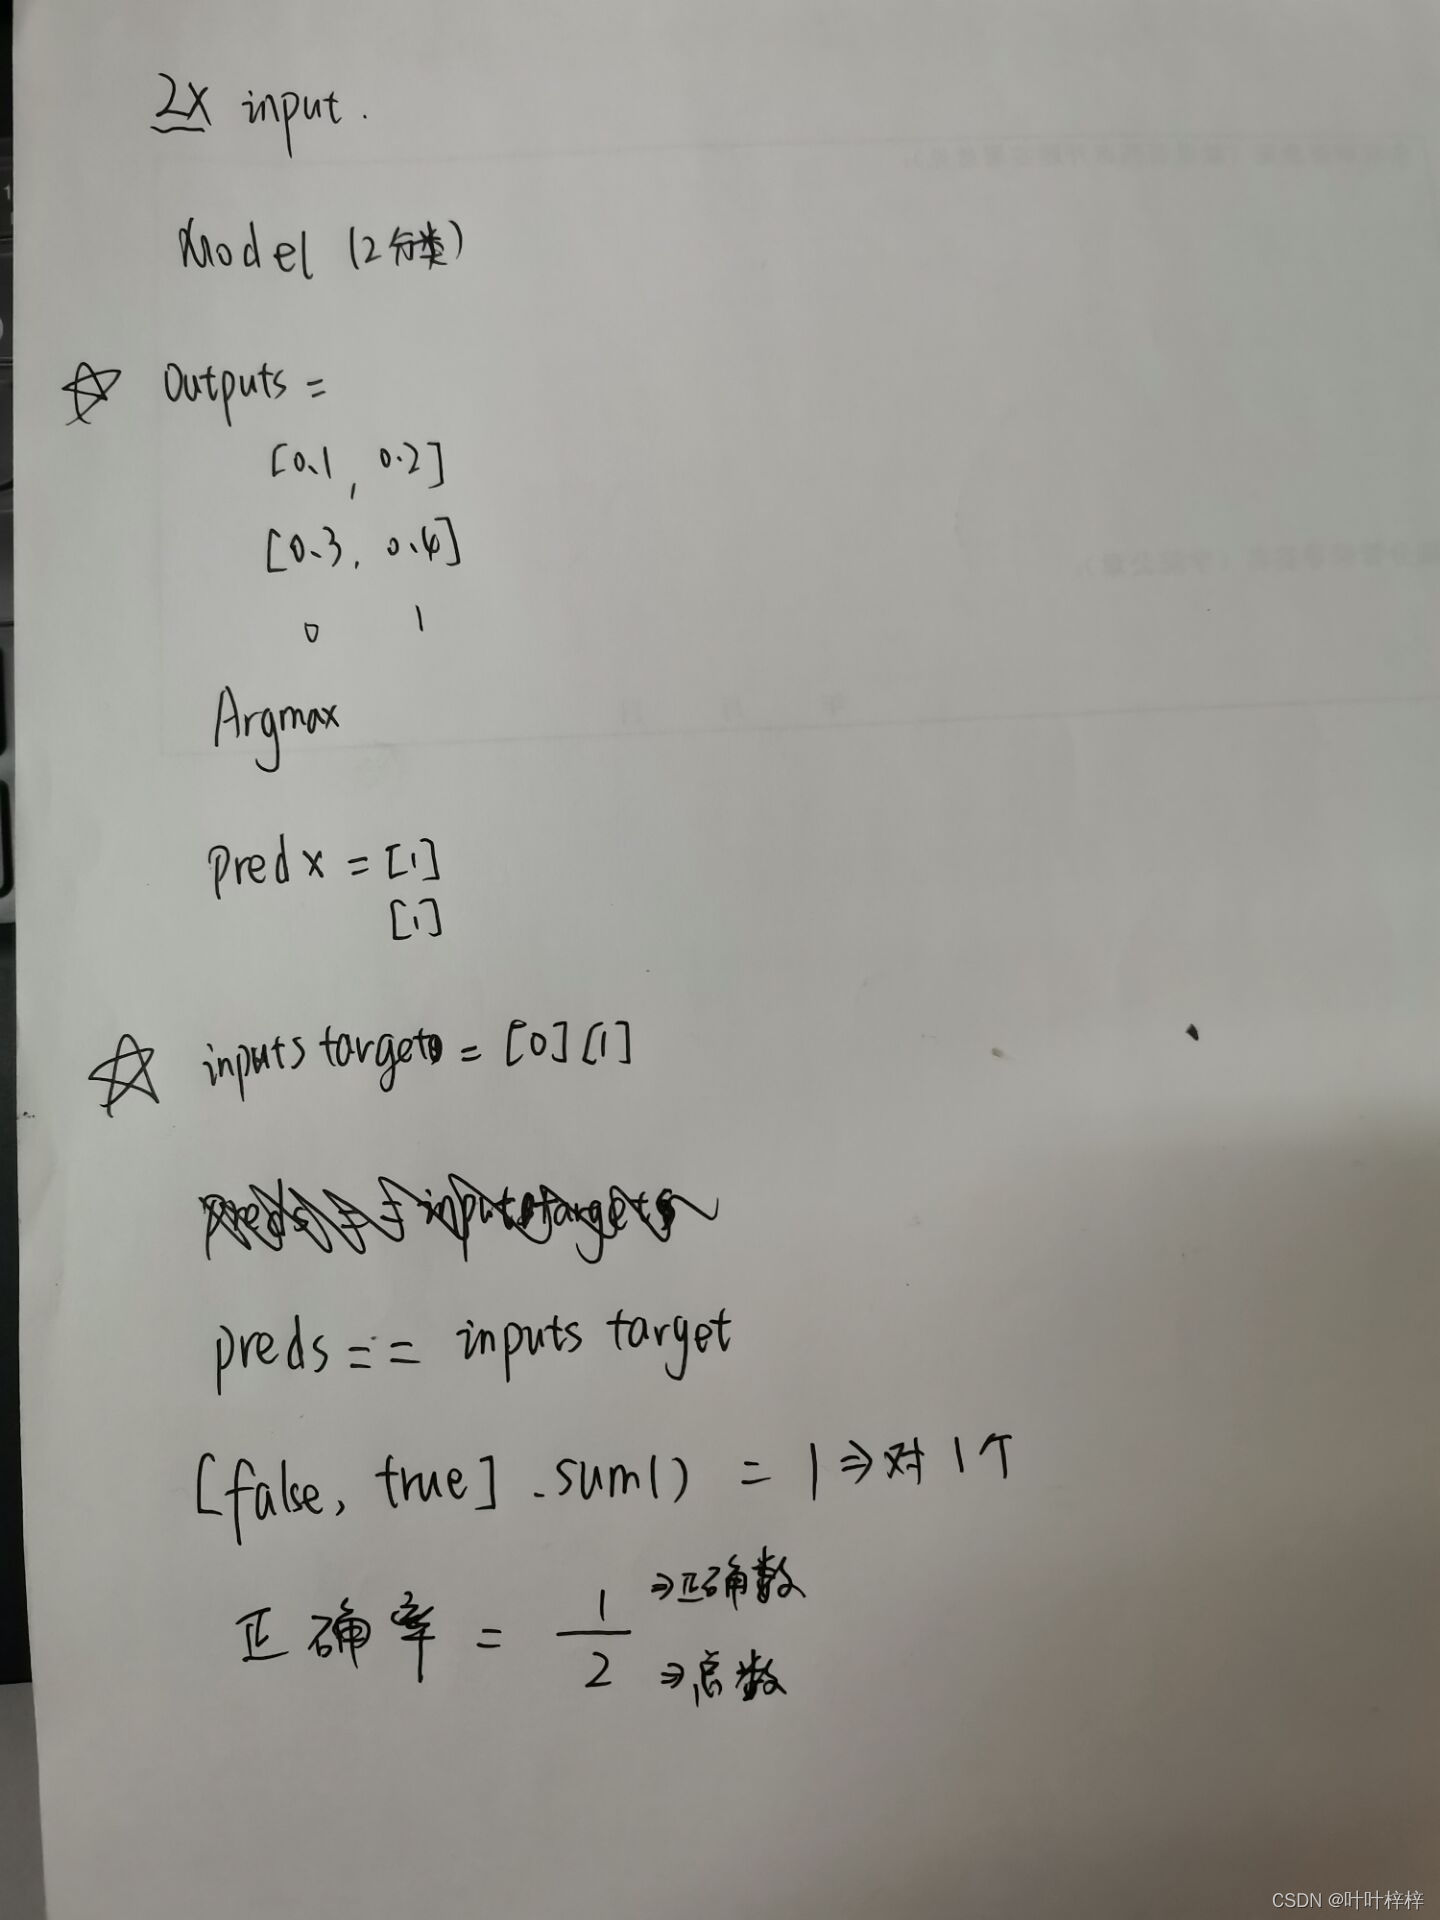 2x input.
Model (2分类)
Outputs =
[0.1, 0.2]
[0.3, 0.4]
0 1
Argmax
Pred x = [1]
[1]
inputs target = [0][1]
preds == inputs targets
preds == inputs target
[false, true].sum() = 1 ⇒ 对1个
正确率 = 1/2 ⇒正确数 ⇒总数
CSDN @叶叶梓梓